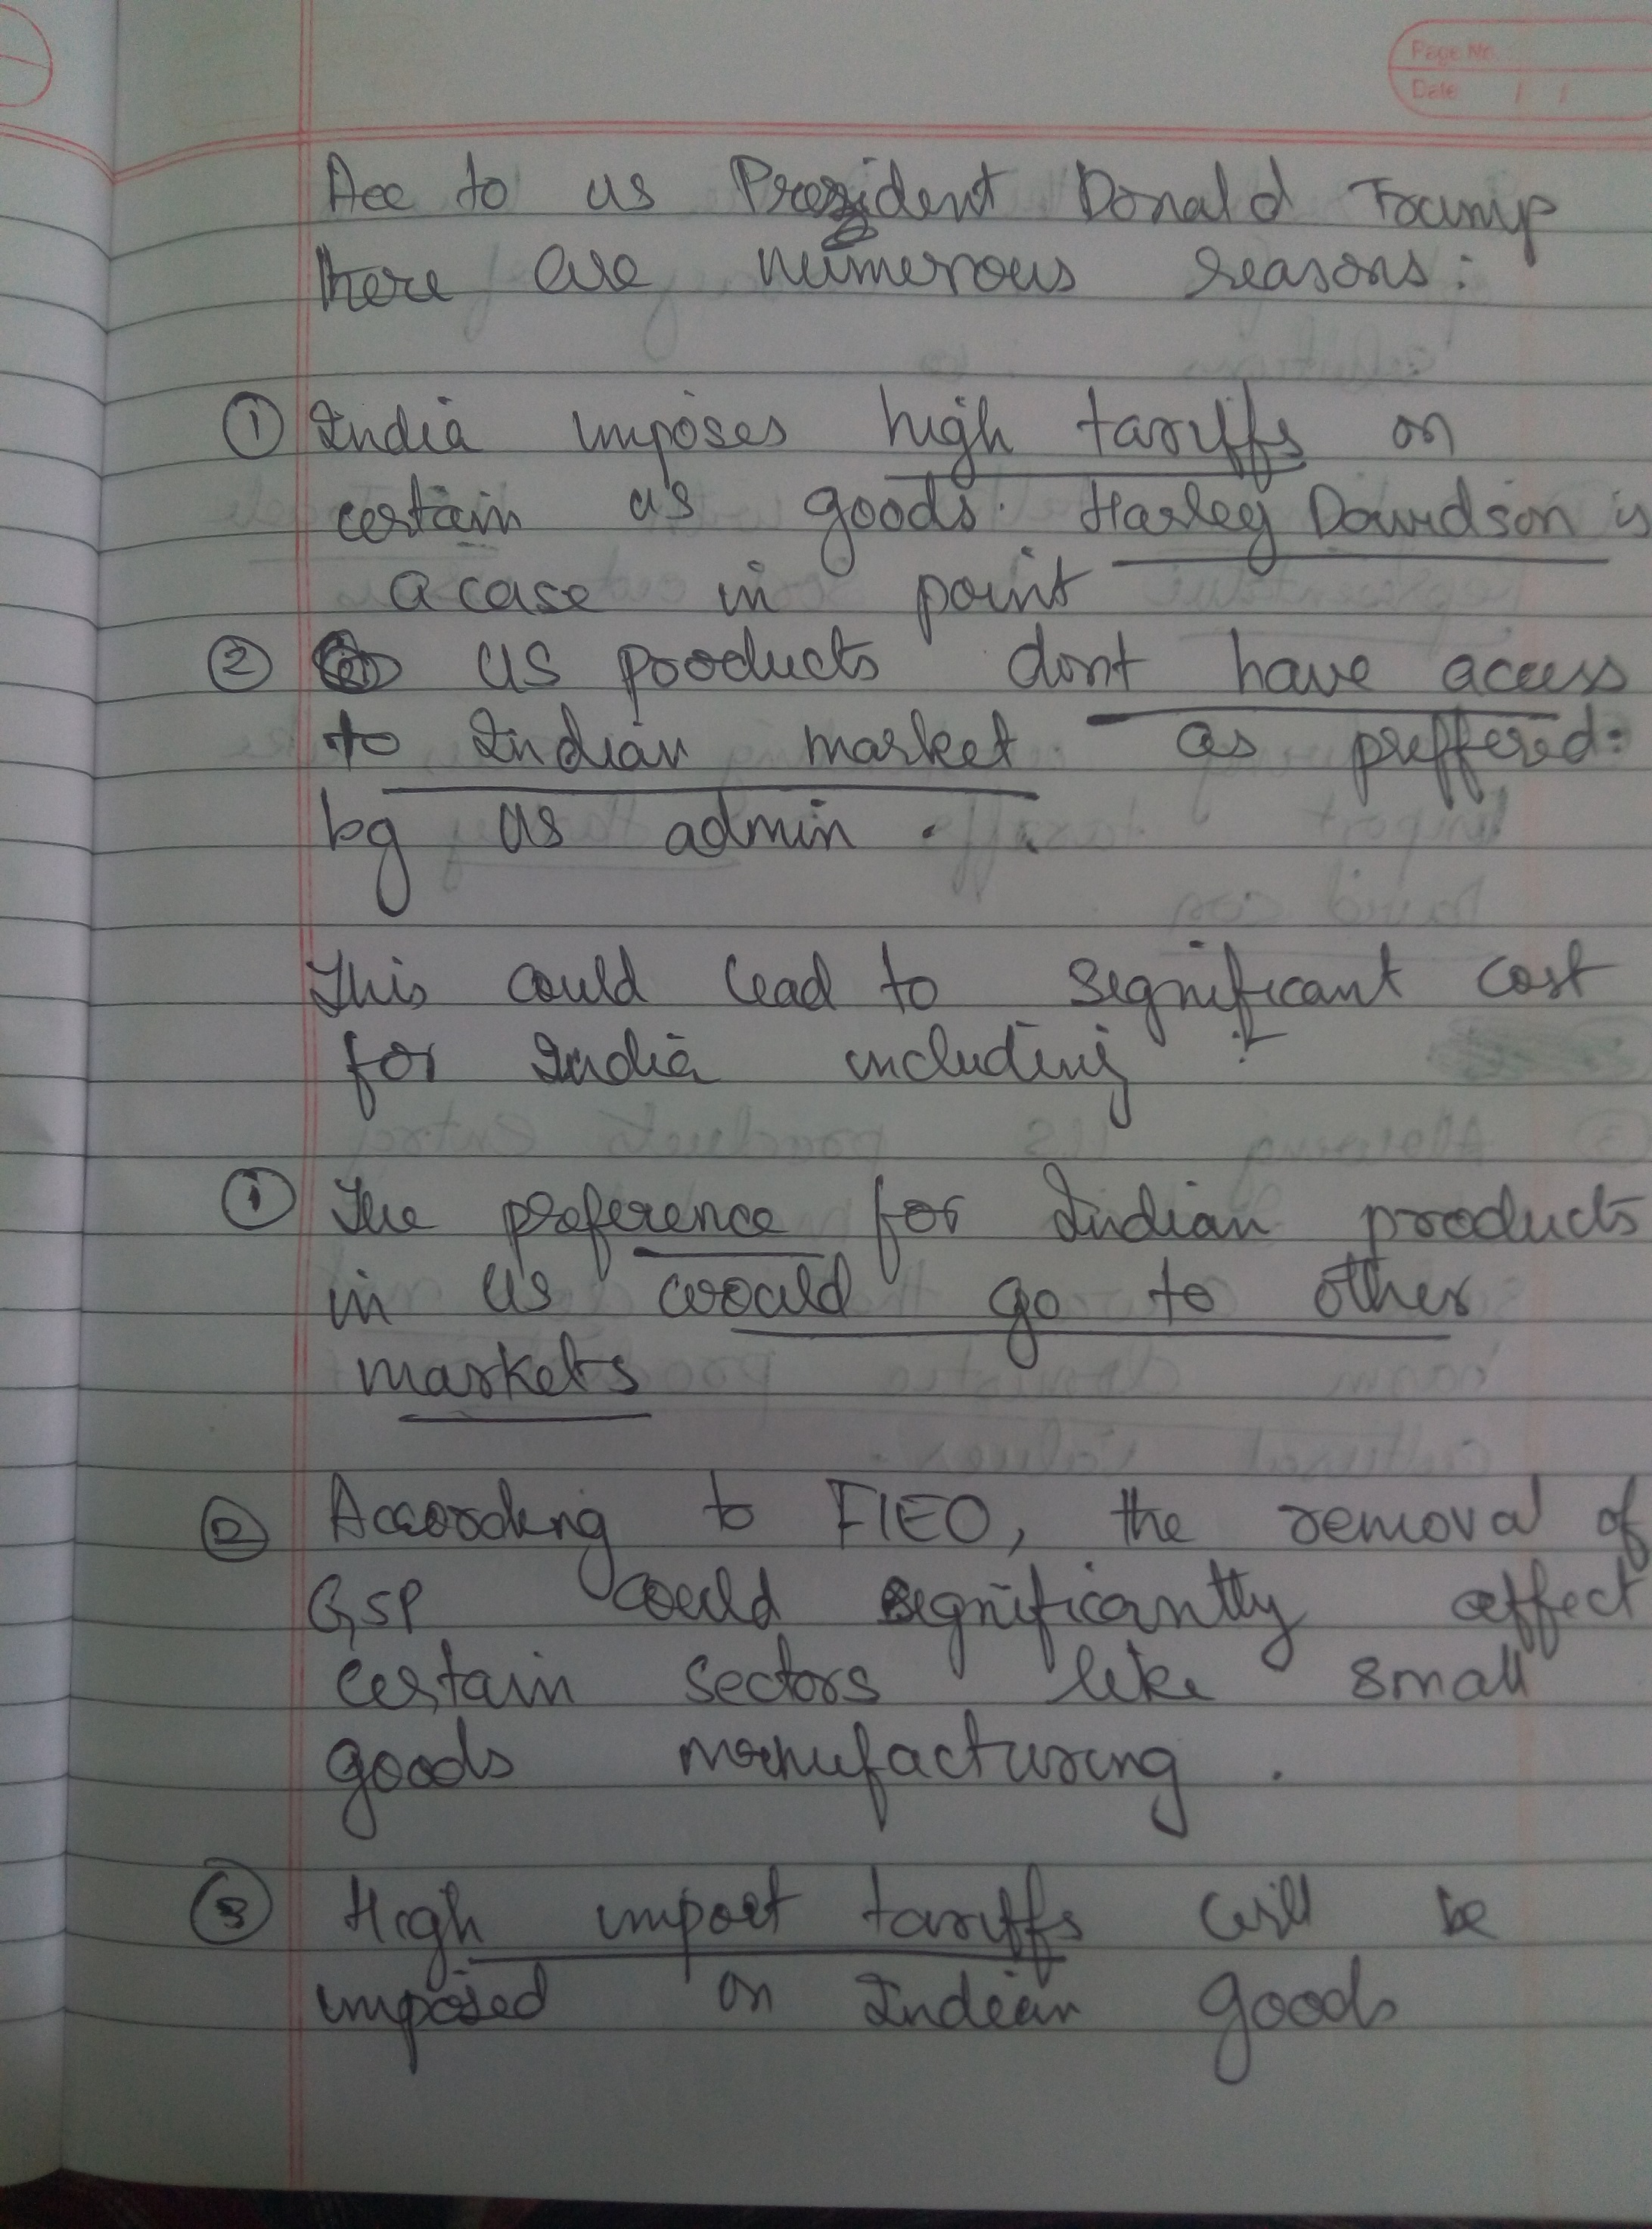 Page No.
Date / /
Acc to US President Donald Trump
here are numerous reasons:
① India imposes high tariffs on
certain US goods. Harley Davidson is
a case in point
② US products dont have access
to Indian market as preffered
by US admin.
This could lead to significant cost
for India including :-
① The preference for Indian products
in US would go to other
markets
② According to FIEO, the removal of
GSP could significantly affect
certain sectors like small
goods manufacturing.
③ High import tariffs will be
imposed on Indian goods